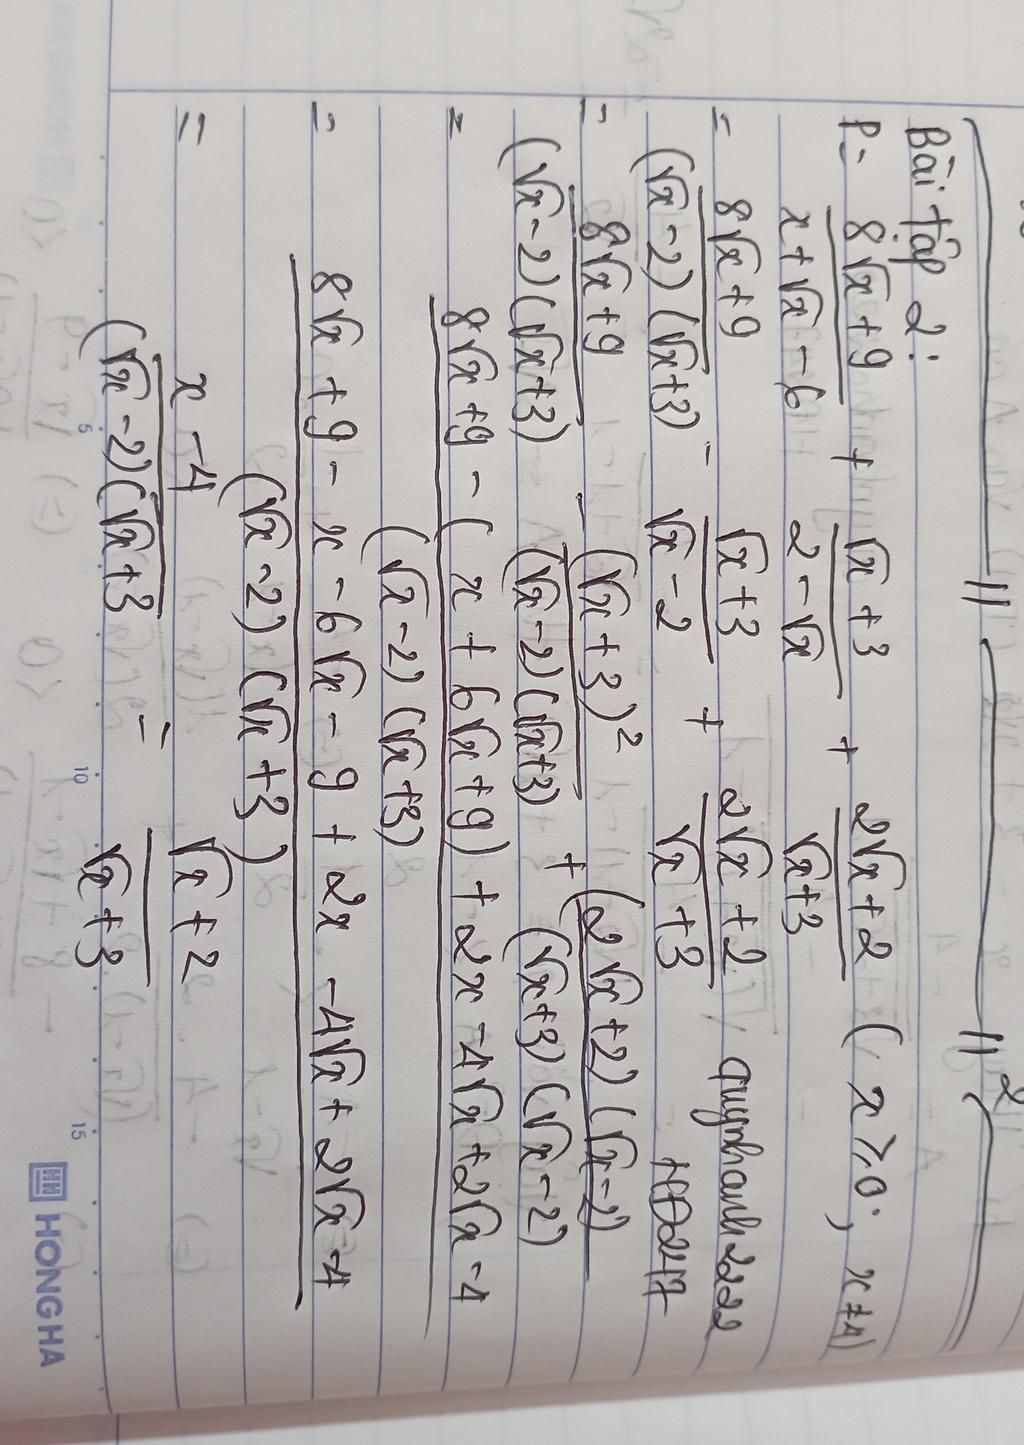 Bài tập 2:
P = (8√x + 9)/(x + √x − 6) + (√x + 3)/(2 − √x) + (2√x + 2)/(√x + 3) (x ≥ 0; x ≠ 4)
= (8√x + 9)/((√x − 2)(√x + 3)) − (√x + 3)/(√x − 2) + (2√x + 2)/(√x + 3) quynhanh2222
= (8√x + 9)/((√x − 2)(√x + 3)) − (√x + 3)²/((√x − 2)(√x + 3)) + (2√x + 2)(√x − 2)/((√x + 3)(√x − 2))
= (8√x + 9 − (x + 6√x + 9) + 2x − 4√x + 2√x − 4)/((√x − 2)(√x + 3))
= (8√x + 9 − x − 6√x − 9 + 2x − 4√x + 2√x − 4)/((√x − 2)(√x + 3))
= (x − 4)/((√x − 2)(√x + 3) = (√x + 2)/(√x + 3)
5 10 15
HONG HA